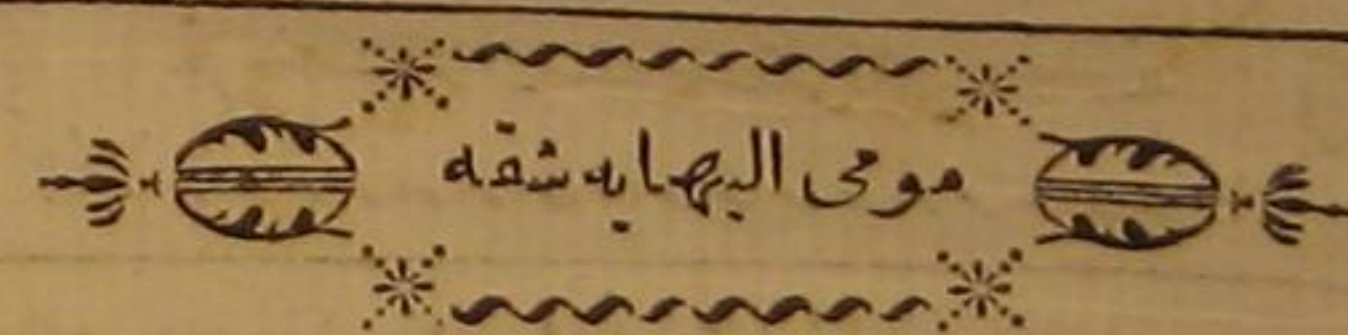 مومى اليهايه شقه